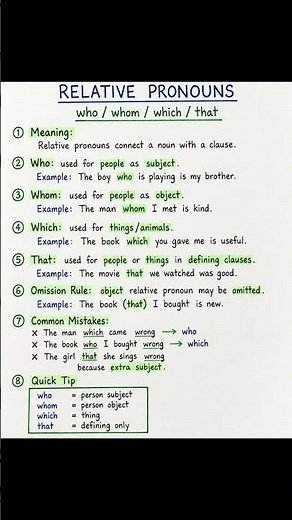 RELATIVE PRONOUNS
who / whom / which / that
① Meaning:
Relative pronouns connect a noun with a clause.
② Who: used for people as subject.
Example: The boy who is playing is my brother.
③ Whom: used for people as object.
Example: The man whom I met is kind.
④ Which: used for things/animals.
Example: The book which you gave me is useful.
⑤ That: used for people or things in defining clauses.
Example: The movie that we watched was good.
⑥ Omission Rule: object relative pronoun may be omitted.
Example: The book (that) I bought is new.
⑦ Common Mistakes:
✗ The man which came wrong → who
✗ The book who I bought wrong → which
✗ The girl that she sings wrong
because extra subject.
⑧ Quick Tip
who = person subject
whom = person object
which = thing
that = defining only